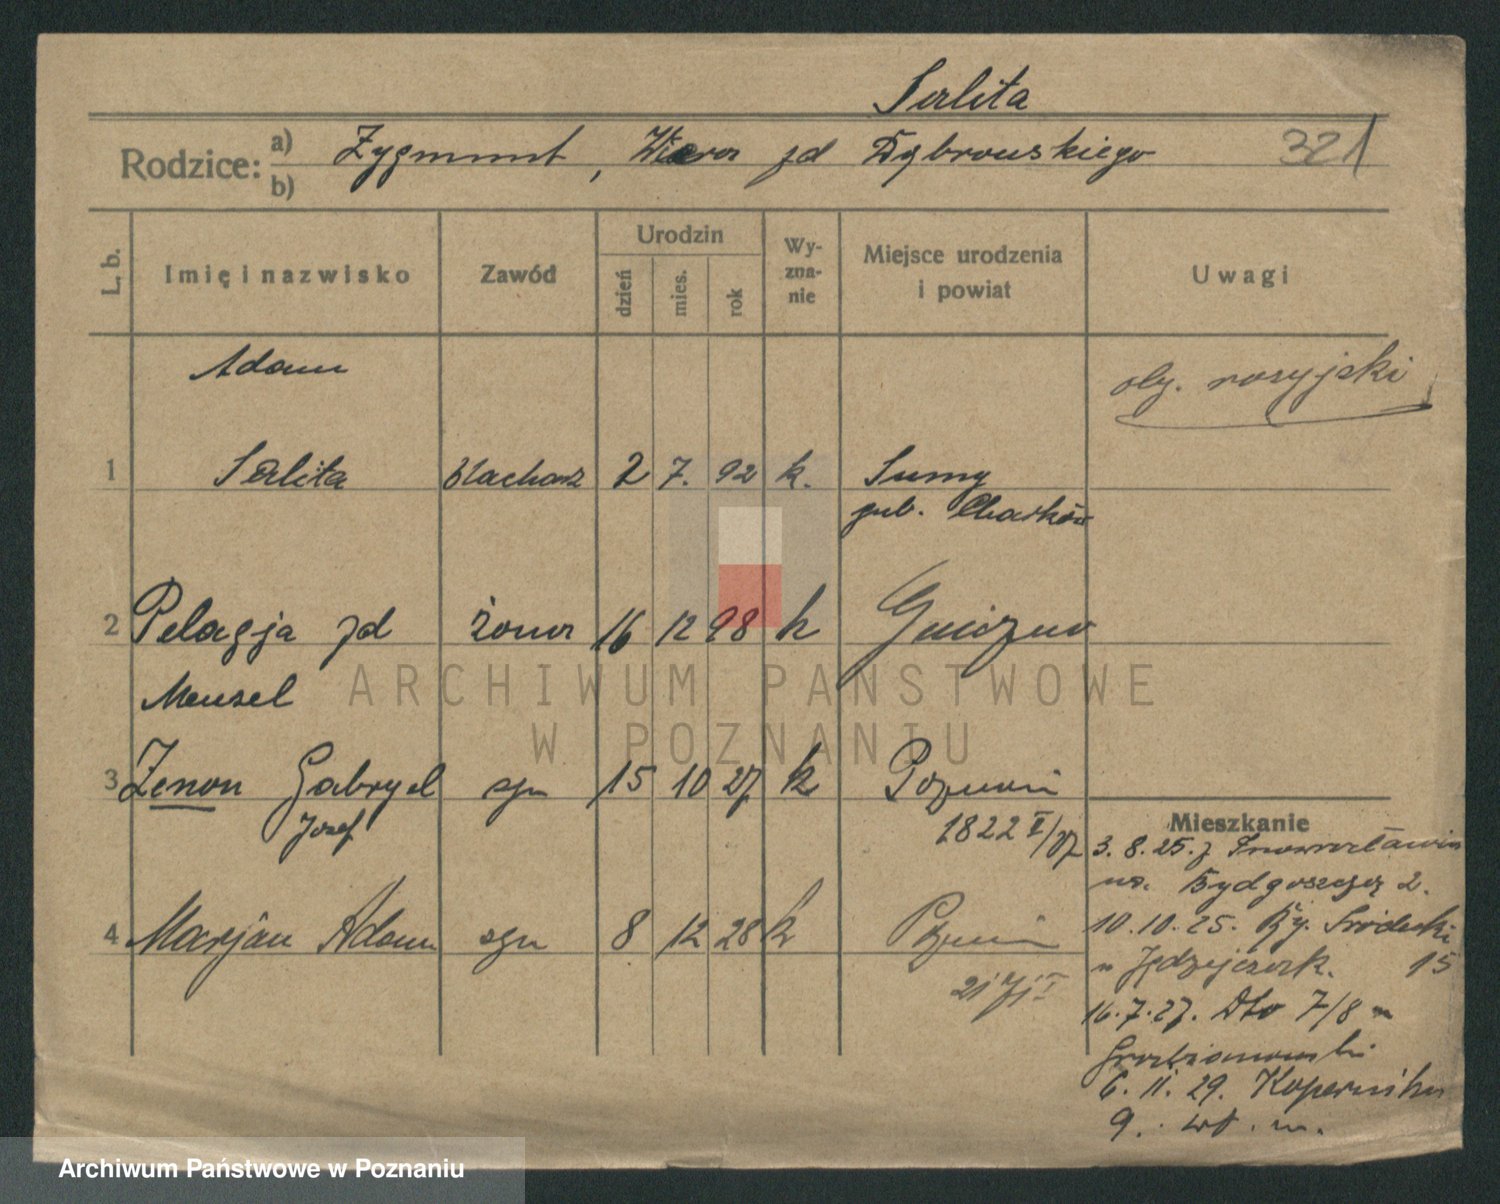 Serlita
Rodzice: a) Zygmunt, Wiera zd Dąbrowskiego 321
b)
L. b. Imię i nazwisko Zawód Urodzin dzień mies. rok Wy-zna-nie Miejsce urodzenia i powiat Uwagi
Adam oby. rosyjski
1 Serlita blacharz 2 7. 92 k. Sumy
gub. Charków
2 Pelagja zd żona 16 12 98 k Gniezno
Mensel
3 Zenon Gabryel syn 15 10 27 k Poznań
Józef 1822 I/27
Mieszkanie
3. 8. 25. z Inowrocławia
na. Bydgoszczą 2.
4 Marjan Adam syn 8 12 28 k Poznań
10.10.25. Ry. Śródecki
u Jędrzejczak. 15
16.7.27. Dto 7/8 u
6. 11. 29. Kopernika
9. wł. m.
ARCHIWUM PAŃSTWOWE
W POZNANIU
Archiwum Państwowe w Poznaniu